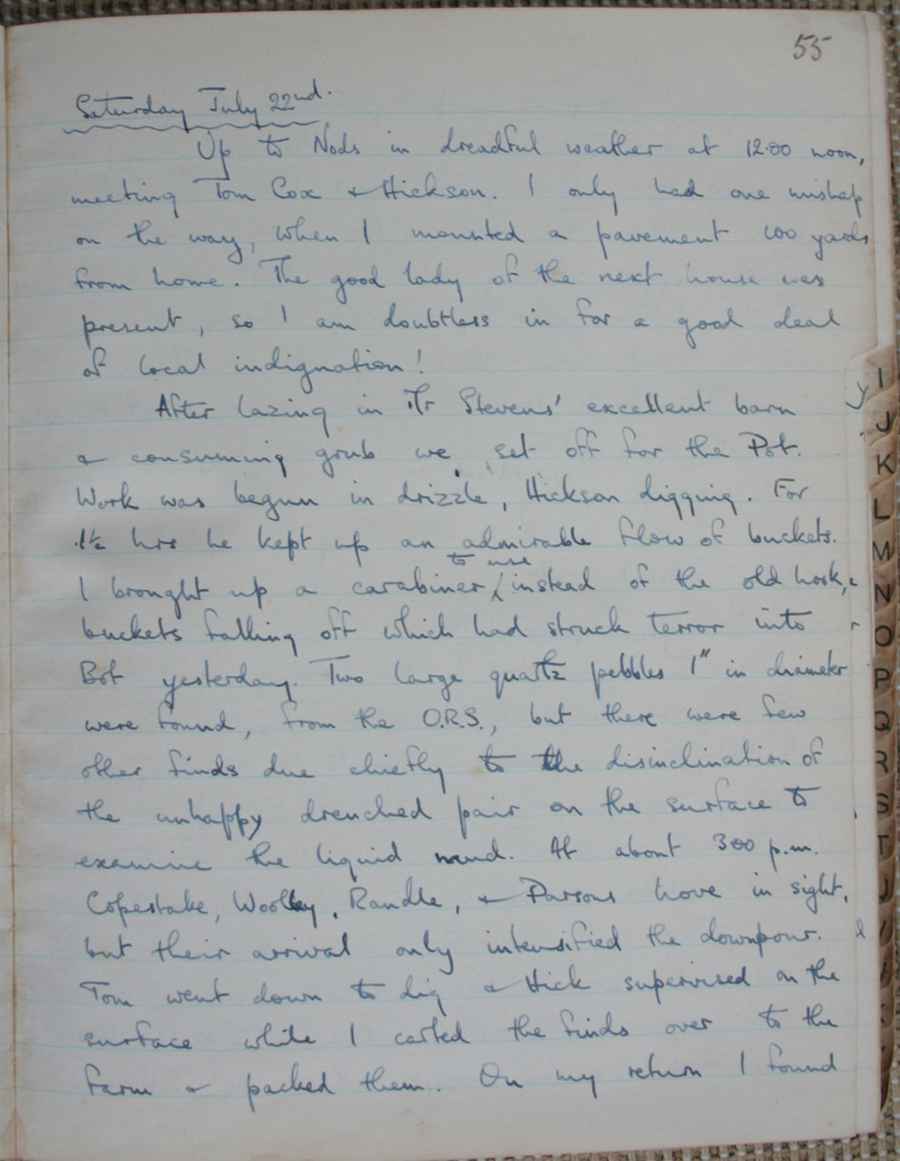 55
Saturday July 22nd.
Up to Nods in dreadful weather at 12.00 noon,
meeting Tom Cox & Hickson. I only had one mishap
on the way, when I mounted a pavement 100 yards
from home. The good lady of the next house was
present, so I am doubtless in for a good deal
of local indignation!
After lazing in Mr Stevens' excellent barn
& consuming grub we set off for the Pot.
Work was begun in drizzle, Hickson digging. For
1½ hrs he kept up an admirable flow of buckets.
to use
I brought up a carabiner instead of the old hook,
buckets falling off which had struck terror into
Bot yesterday. Two large quartz pebbles 1" in diameter
were found, from the O.R.S., but there were few
other finds due chiefly to the disinclination of
the unhappy drenched pair on the surface to
examine the liquid mud. At about 3.00 p.m.
Copestake, Woolley, Randle, & Parsons hove in sight,
but their arrival only intensified the downpour.
Tom went down to dig & Hick supervised on the
surface while I carted the finds over to the
farm & packed them. On my return I found
I
J
K
L
M
N
O
P
Q
R
S
T
U